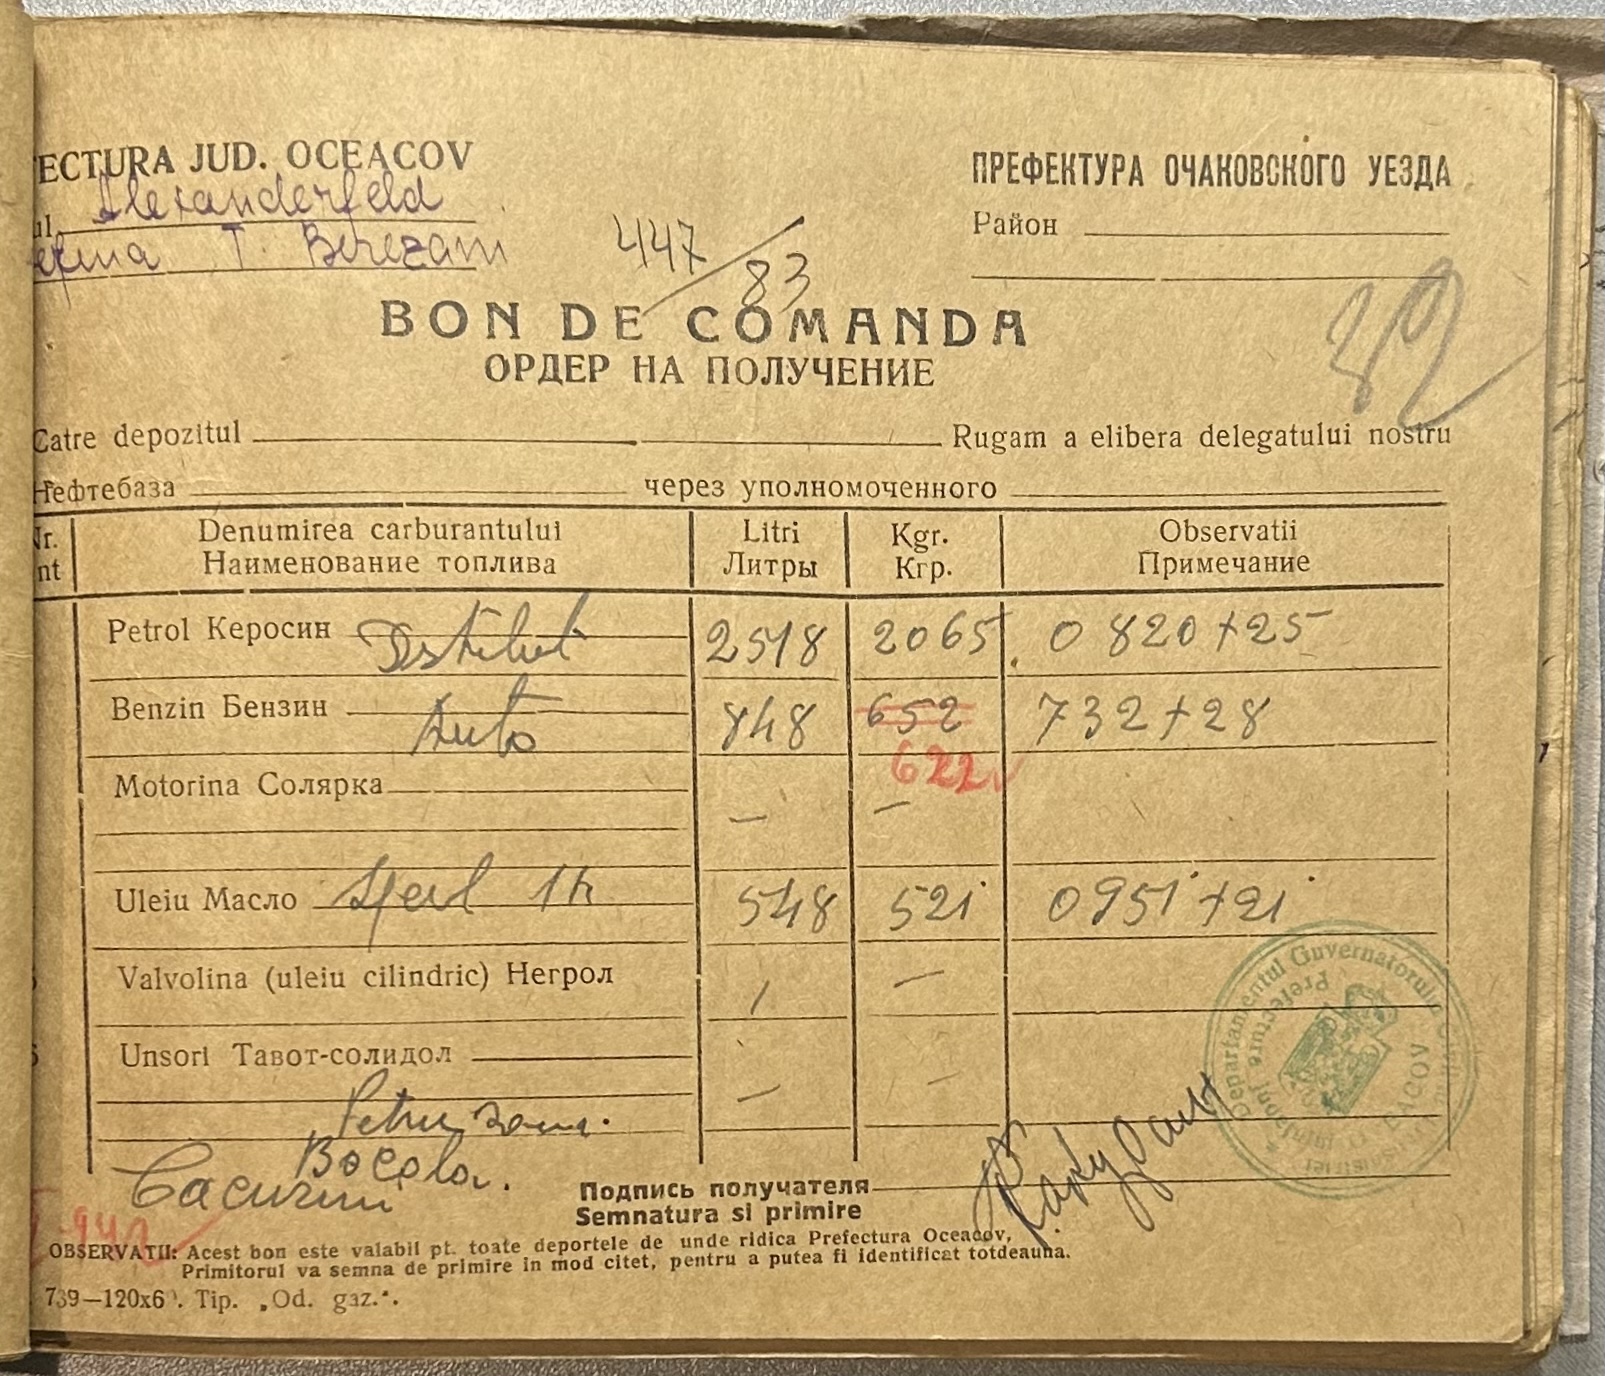 ECTURA JUD. OCEACOV
ul. Alexanderfeld
T. Berezani
447/83
ПРЕФЕКТУРА ОЧАКОВСКОГО УЕЗДА
Район
82
BON DE COMANDA
ОРДЕР НА ПОЛУЧЕНИЕ
Catre depozitul Rugam a elibera delegatului nostru
Нефтебаза через уполномоченного
Nr. Denumirea carburantului Litri Kgr. Observatii
nt Наименование топлива Литры Кгр. Примечание
Petrol Керосин 2518 2065 0 820+25
Benzin Бензин Auto 848 652 732+28
622
Motorina Солярка — —
Uleiu Масло 548 521 0951+21
Valvolina (uleiu cilindric) Негрол — —
Unsori Тавот-солидол — —
Petru
Подпись получателя
Semnatura si primire
OBSERVATII: Acest bon este valabil pt. toate deportele de unde ridica Prefectura Oceacov,
Primitorul va semna de primire in mod citet, pentru a putea fi identificat totdeauna.
739—120x6 . Tip. „Od. gaz.“.
Departamentul Guvernatorului
Prefectura